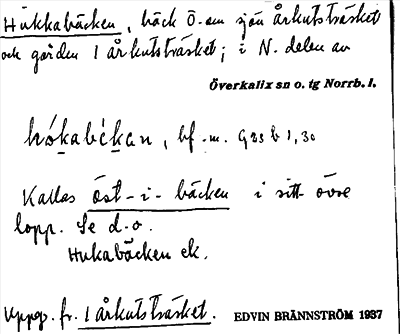 Hukkabäcken, bäck Ö. om sjön Årkutsträsket
och gården 1 Årkutsträsket; i N. delen av
Överkalix sn o. tg Norrb. l.
hókabékan, bf. m. G 23 b 1,30
Kallas öst-i-bäcken i sitt övre
lopp. Se d. o.
Hukabäcken ek.
Uppg. fr. 1 Årkutsträsket. EDVIN BRÄNNSTRÖM 1937